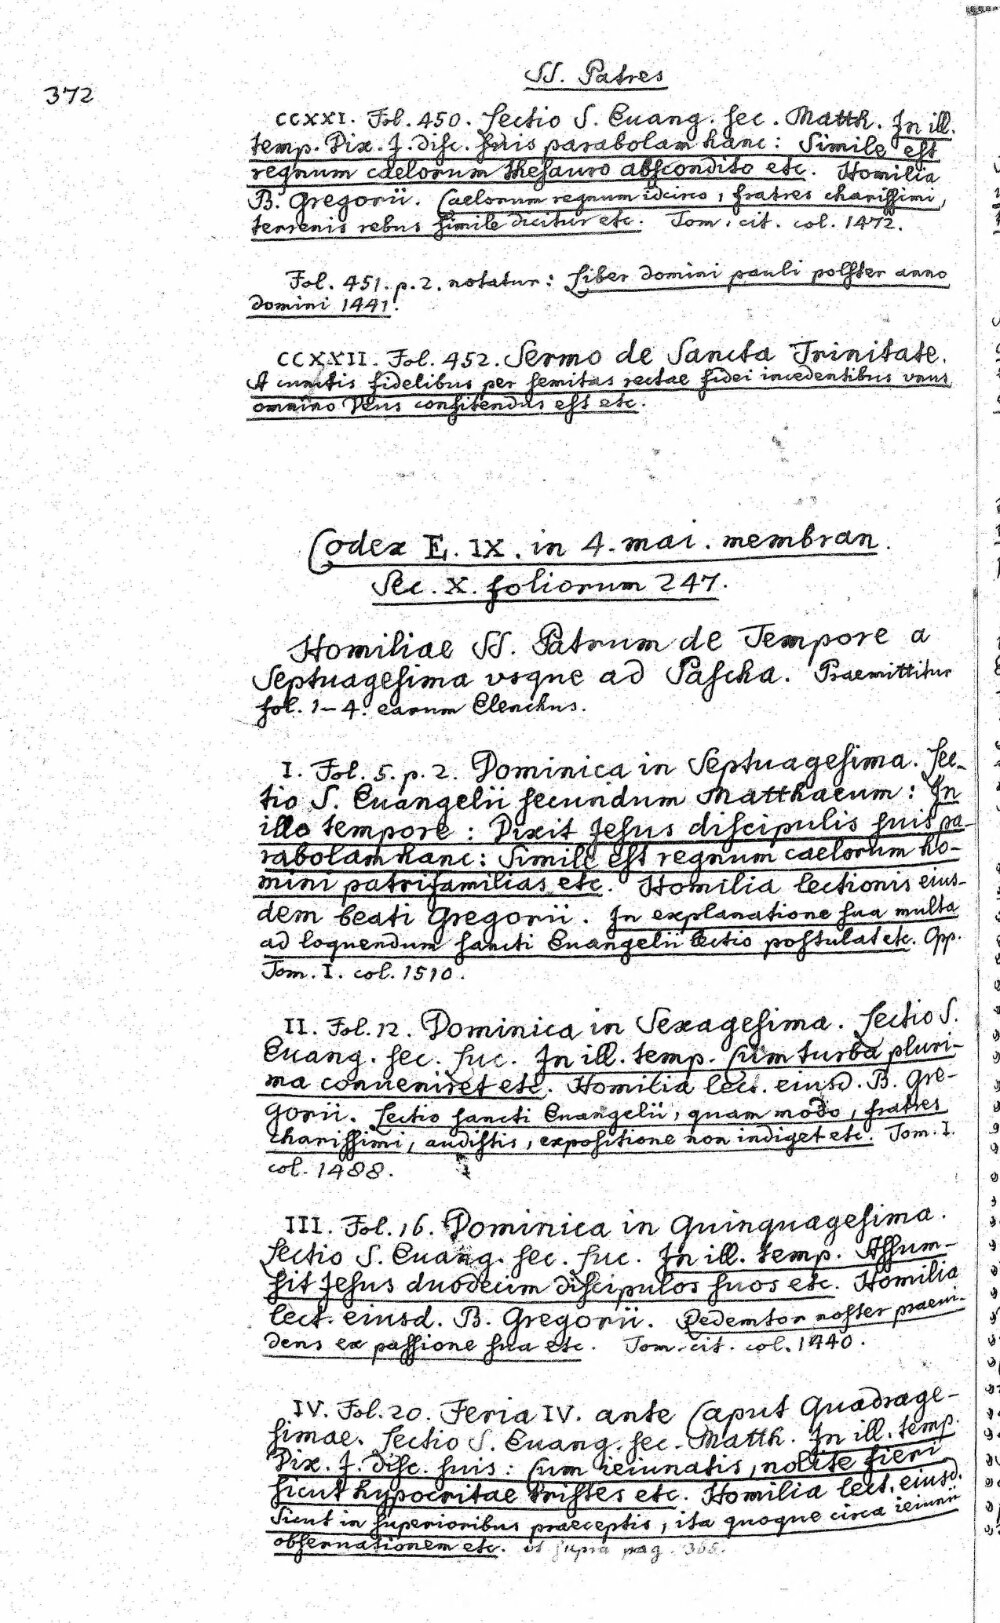 SS. Patres
372
CCXXI. Fol. 450. Lectio S. Euang. sec. Matth. In ill.
temp. Dix. J. disc. suis parabolam hanc: Simile est
regnum caelorum thesauro abscondito etc. Homilia
B. Gregorii. Caelorum regnum idcirco, fratres charissimi,
terrenis rebus simile dicitur etc. Tom. cit. col. 1472.
Fol. 451. p. 2. notatur: Liber domini pauli polster anno
domini 1441.
CCXXII. Fol. 452. Sermo de Sancta Trinitate.
A cunctis fidelibus per semitas rectae fidei incedentibus vnus
omnino Deus confitendus est etc.
Codex E. IX. in 4. mai. membran.
Sec. X. foliorum 247.
Homiliae SS. Patrum de Tempore a
Septuagesima vsque ad Pascha. Praemittitur
fol. 1-4. earum Elenchus.
I. Fol. 5. p. 2. Dominica in Septuagesima. Lec-
tio S. Euangelii secundum Matthaeum: In
illo tempore: Dixit Jesus discipulis suis pa-
rabolam hanc: Simile est regnum caelorum ho-
mini patrifamilias etc. Homilia lectionis eius-
dem beati Gregorii. In explanatione sua multa
ad loquendum sancti Euangelii lectio postulat etc. Opp.
Tom. I. col. 1510.
II. Fol. 12. Dominica in Sexagesima. Lectio S.
Euang. sec. Luc. In ill. temp. Cum turba pluri-
ma conueniret etc. Homilia lect. eiusd. B. Gre-
gorii. Lectio sancti Euangelii, quam modo, fratres
charissimi, audistis, expositione non indiget etc. Tom. I.
col. 1488.
III. Fol. 16. Dominica in Quinquagesima.
Lectio S. Euang. sec. Luc. In ill. temp. Assum-
sit Jesus duodecim discipulos suos etc. Homilia
lect. eiusd. B. Gregorii. Redemtor noster praeui-
dens ex passione sua etc. Tom. cit. col. 1440.
IV. Fol. 20. Feria IV. ante Caput Quadrage-
simae. Lectio S. Euang. sec. Matth. In ill. temp.
Dix. J. disc. suis: Cum ieiunatis, nolite fieri
sicut hypocritae tristes etc. Homilia lect. eiusd.
Sicut in superioribus praeceptis, ita quoque circa ieiunii
obseruationem etc. ut supra pag. 366.